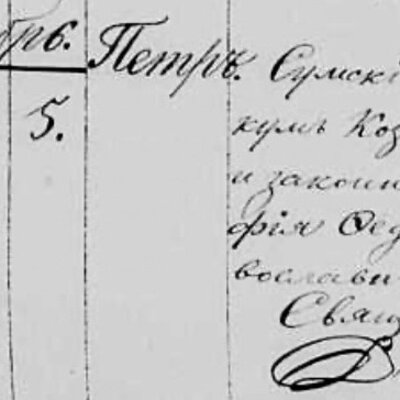 брѣ. Петръ. Сумскі
5. кумъ Коз
и закон
фія Ѳед
вославн
Свящ